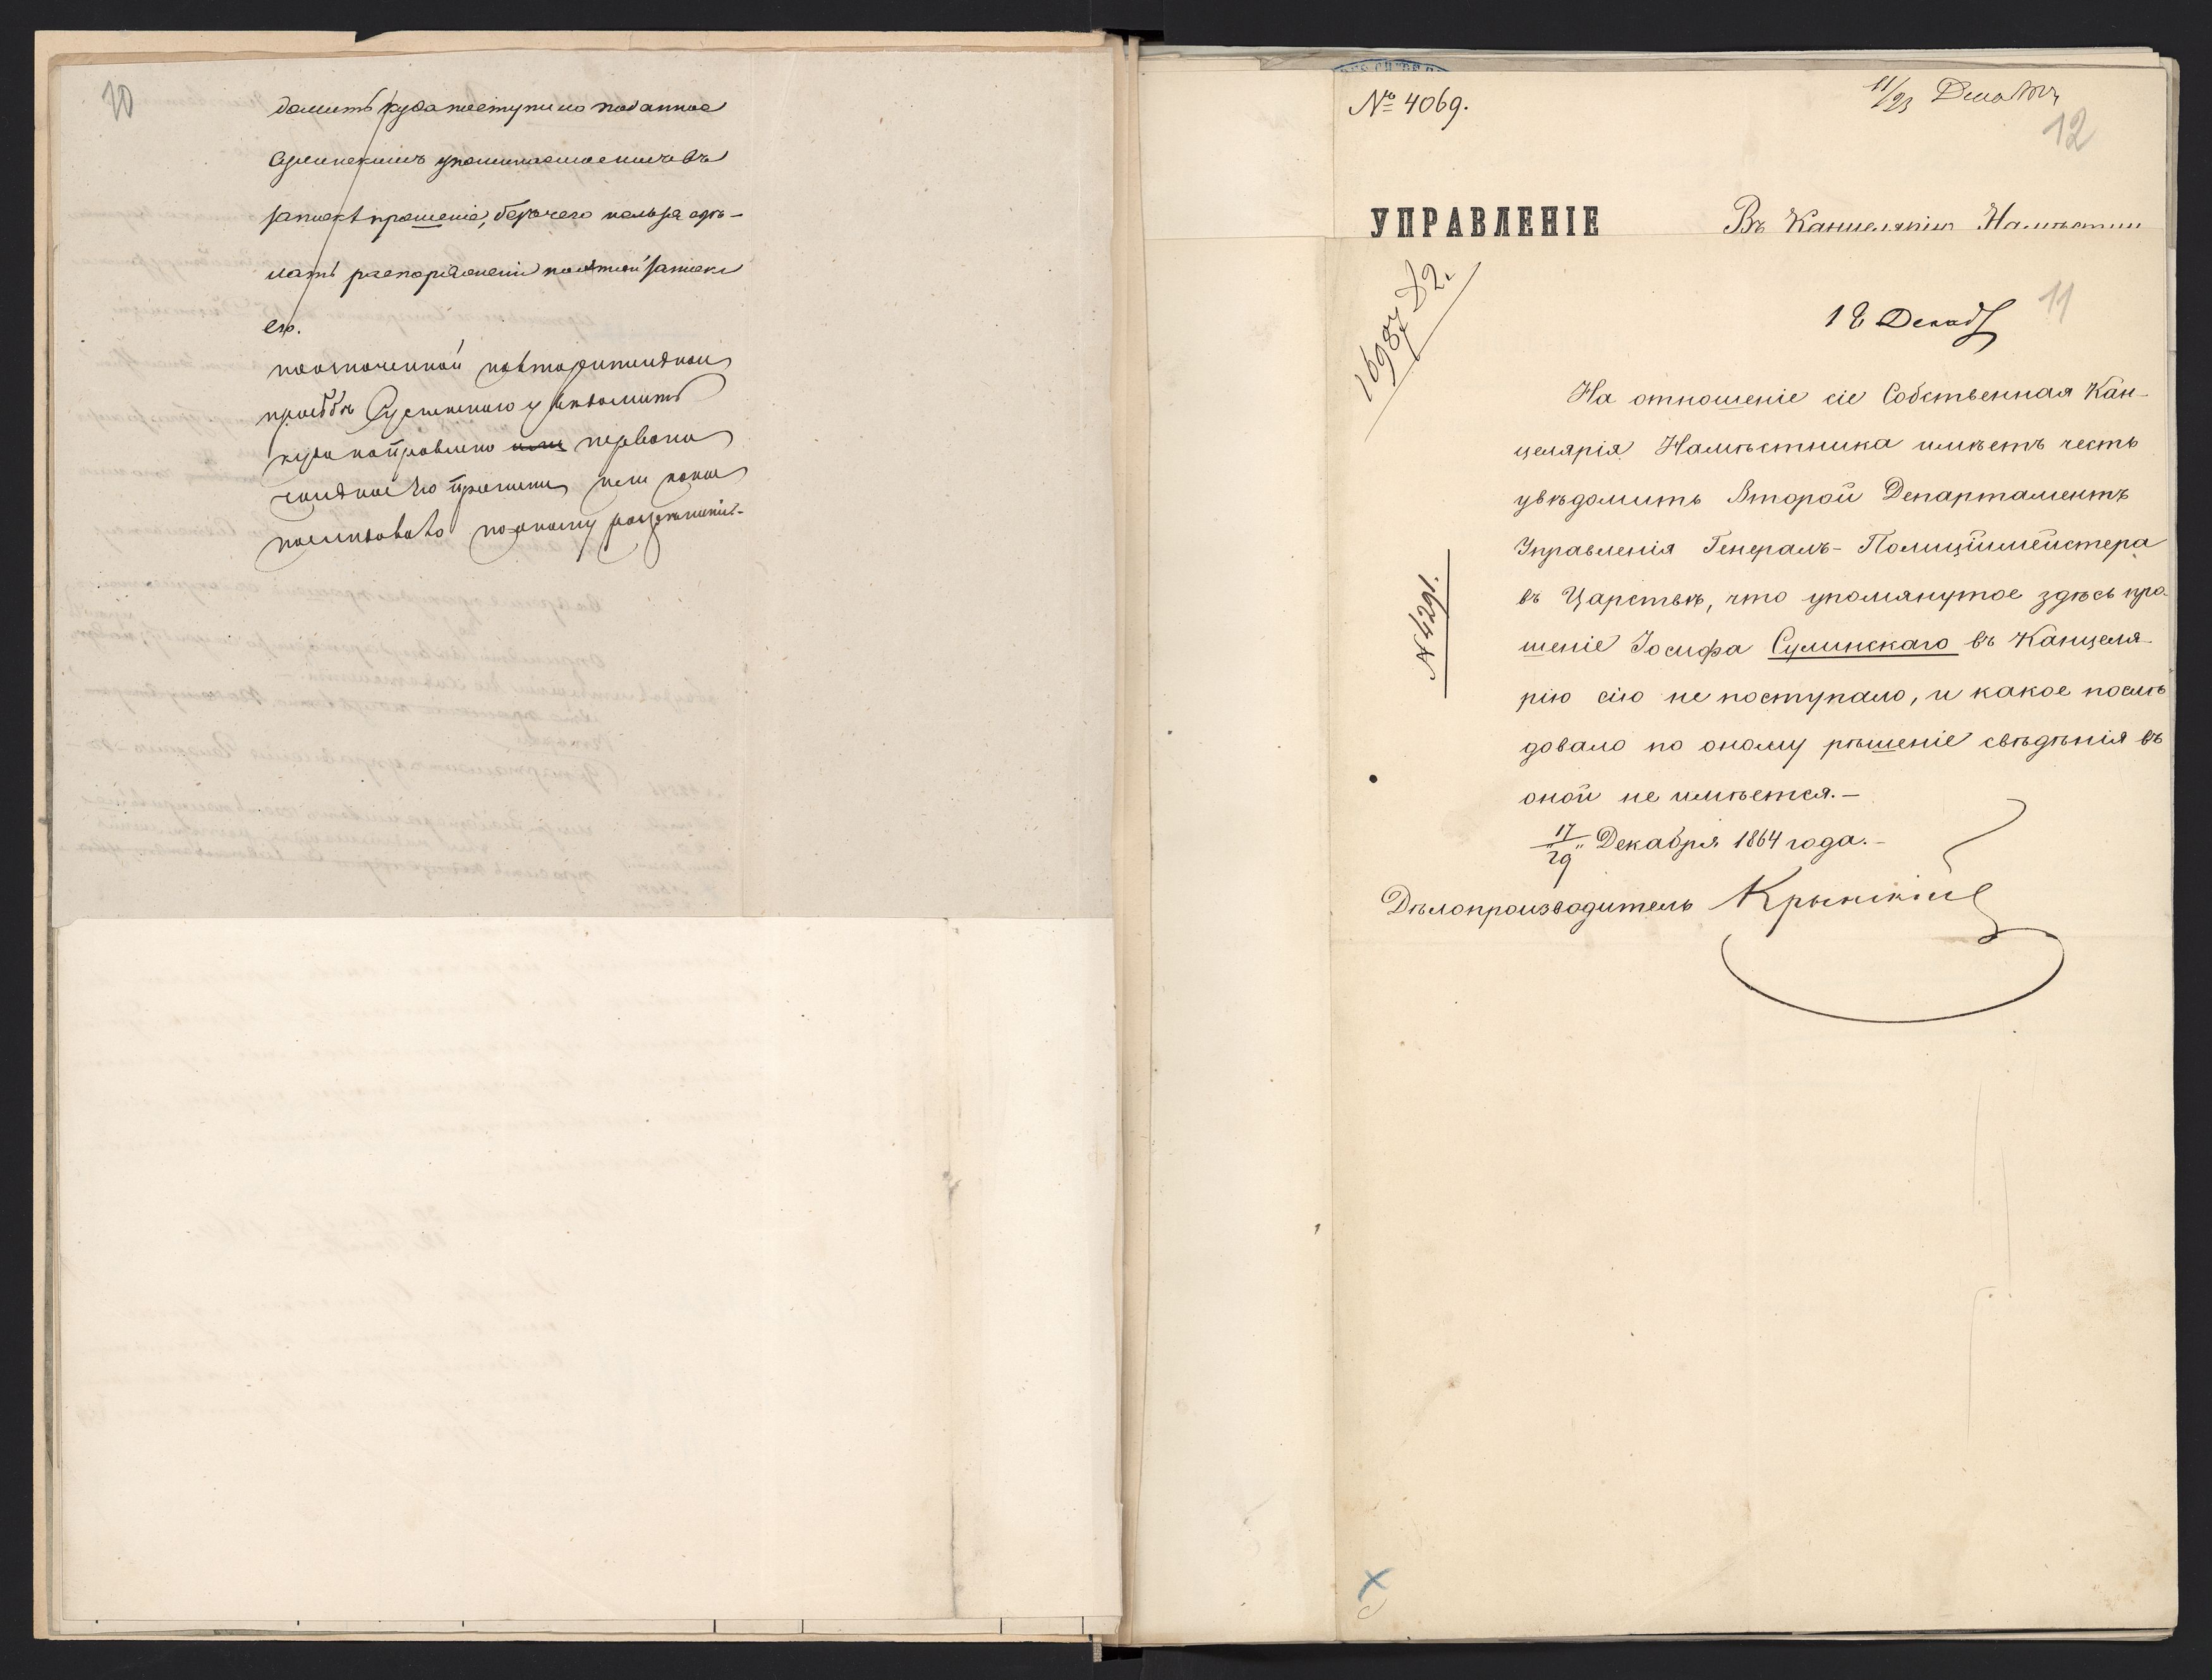 10
домить куда поступило поданное
Сулинскимъ упоминаемое имъ въ
запискѣ прошеніе, безъ чего нельзя сдѣ-
лать распоряженія по этой запискѣ
его.
просьбѣ Сулинского увѣдомить
куда направлено первона
чальное его прошеніе или какое
послѣдовало по оному разрѣшеніе.
№ 4069.
11/23 Декабря
12
УПРАВЛЕНІЕ
Въ Канцелярію Намѣстни
16987 Д2.
18 Декаб
11
На отношеніе сіе Собственная Кан-
целярія Намѣстника имѣетъ честь
увѣдомить Второй Департаментъ
Управленія Генералъ-Полицiймейстера
въ Царствѣ, что упомянутое здѣсь про-
шеніе Іосифа Сулинскаго въ Канцеля-
рію сію не поступало, и какое послѣ
довало по оному рѣшеніе свѣдѣнія въ
оной не имѣется.—
№ 4291.
17/29 Декабря 1864 года.—
Дѣлопроизводитель Крынскій